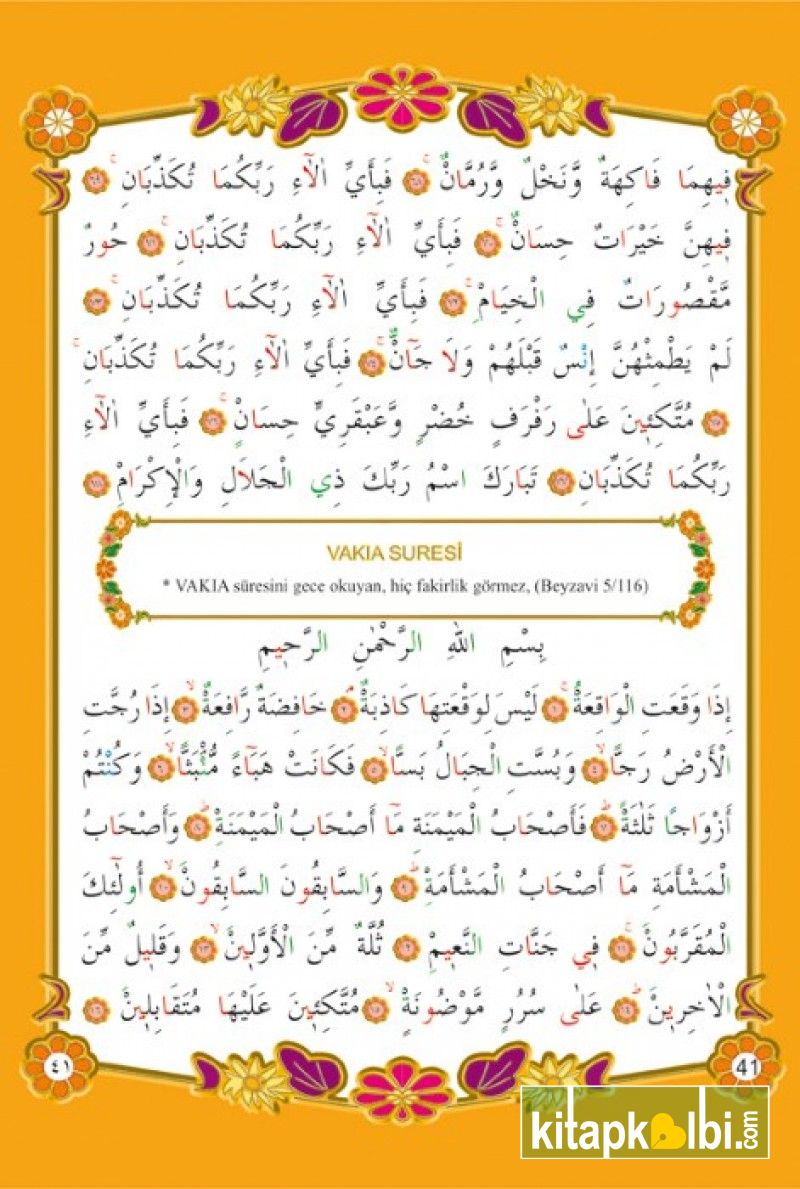 فِيهِمَا فَاكِهَةٌ وَنَخْلٌ وَرُمَّانٌۚ ﴿٦٨﴾ فَبِأَيِّ اٰلَٓاءِ رَبِّكُمَا تُكَذِّبَانِۚ ﴿٦٩﴾
فِيهِنَّ خَيْرَاتٌ حِسَانٌۚ ﴿٧٠﴾ فَبِأَيِّ اٰلَٓاءِ رَبِّكُمَا تُكَذِّبَانِۚ ﴿٧١﴾ حُورٌ
مَقْصُورَاتٌ فِي الْخِيَامِۚ ﴿٧٢﴾ فَبِأَيِّ اٰلَٓاءِ رَبِّكُمَا تُكَذِّبَانِۚ ﴿٧٣﴾
لَمْ يَطْمِثْهُنَّ إِنْسٌ قَبْلَهُمْ وَلَا جَٓانٌّۚ ﴿٧٤﴾ فَبِأَيِّ اٰلَٓاءِ رَبِّكُمَا تُكَذِّبَانِۚ
﴿٧٥﴾ مُتَّكِئِينَ عَلٰى رَفْرَفٍ خُضْرٍ وَعَبْقَرِيٍّ حِسَانٍۚ ﴿٧٦﴾ فَبِأَيِّ اٰلَٓاءِ
رَبِّكُمَا تُكَذِّبَانِ ﴿٧٧﴾ تَبَارَكَ اسْمُ رَبِّكَ ذِي الْجَلَالِ وَالْإِكْرَامِ ﴿٧٨﴾
VAKIA SURESİ
* VAKIA sûresini gece okuyan, hiç fakirlik görmez, (Beyzavi 5/116)
بِسْمِ اللّٰهِ الرَّحْمٰنِ الرَّحِيمِ
إِذَا وَقَعَتِ الْوَاقِعَةُۙ ﴿١﴾ لَيْسَ لِوَقْعَتِهَا كَاذِبَةٌۢ ﴿٢﴾ خَافِضَةٌ رَافِعَةٌۙ ﴿٣﴾ إِذَا رُجَّتِ
الْأَرْضُ رَجًّاۙ ﴿٤﴾ وَبُسَّتِ الْجِبَالُ بَسًّاۙ ﴿٥﴾ فَكَانَتْ هَبَٓاءً مُنْبَثًّاۙ ﴿٦﴾ وَكُنْتُمْ
أَزْوَاجًا ثَلٰثَةًۜ ﴿٧﴾ فَأَصْحَابُ الْمَيْمَنَةِ مَٓا أَصْحَابُ الْمَيْمَنَةِۜ ﴿٨﴾ وَأَصْحَابُ
الْمَشْأَمَةِ مَٓا أَصْحَابُ الْمَشْأَمَةِۜ ﴿٩﴾ وَالسَّابِقُونَ السَّابِقُونَۙ ﴿١٠﴾ أُولٰٓئِكَ
الْمُقَرَّبُونَۚ ﴿١١﴾ فِي جَنَّاتِ النَّعِيمِ ﴿١٢﴾ ثُلَّةٌ مِنَ الْأَوَّلِينَۙ ﴿١٣﴾ وَقَلِيلٌ مِنَ
الْاٰخِرِينَۜ ﴿١٤﴾ عَلٰى سُرُرٍ مَوْضُونَةٍۙ ﴿١٥﴾ مُتَّكِئِينَ عَلَيْهَا مُتَقَابِلِينَ ﴿١٦﴾
٤١
41
kitapkalbi.com